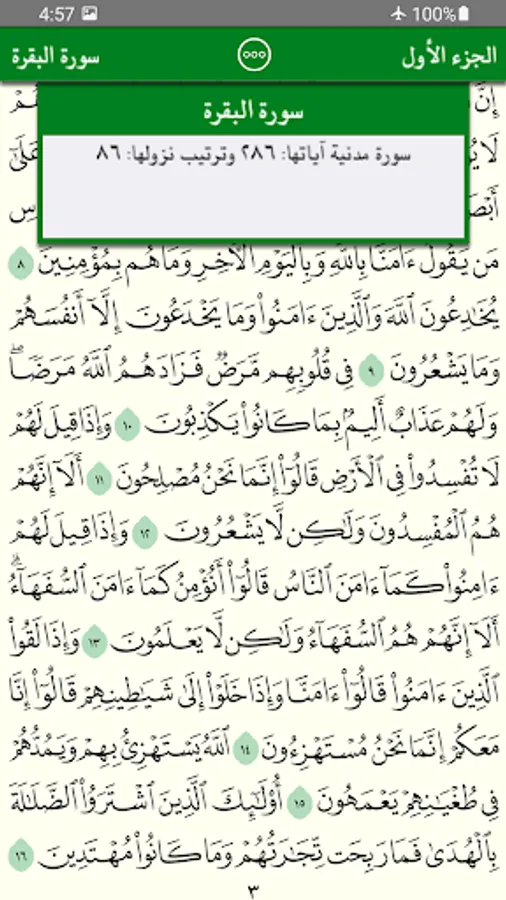 4:57 100%
سورة البقرة الجزء الأول
سورة البقرة
سورة مدنية آياتها: ٢٨٦ وترتيب نزولها: ٨٦
مَن يَقُولُ ءَامَنَّا بِٱللَّهِ وَبِٱلْيَوْمِ ٱلْأَخِرِ وَمَا هُم بِمُؤْمِنِينَ ٨
يُخَٰدِعُونَ ٱللَّهَ وَٱلَّذِينَ ءَامَنُوا۟ وَمَا يَخْدَعُونَ إِلَّآ أَنفُسَهُمْ
وَمَا يَشْعُرُونَ ٩ فِى قُلُوبِهِم مَّرَضٌ فَزَادَهُمُ ٱللَّهُ مَرَضًا ۖ
وَلَهُمْ عَذَابٌ أَلِيمٌۢ بِمَا كَانُوا۟ يَكْذِبُونَ ١٠ وَإِذَا قِيلَ لَهُمْ
لَا تُفْسِدُوا۟ فِى ٱلْأَرْضِ قَالُوٓا۟ إِنَّمَا نَحْنُ مُصْلِحُونَ ١١ أَلَآ إِنَّهُمْ
هُمُ ٱلْمُفْسِدُونَ وَلَٰكِن لَّا يَشْعُرُونَ ١٢ وَإِذَا قِيلَ لَهُمْ
ءَامِنُوا۟ كَمَآ ءَامَنَ ٱلنَّاسُ قَالُوٓا۟ أَنُؤْمِنُ كَمَآ ءَامَنَ ٱلسُّفَهَآءُ ۗ
أَلَآ إِنَّهُمْ هُمُ ٱلسُّفَهَآءُ وَلَٰكِن لَّا يَعْلَمُونَ ١٣ وَإِذَا لَقُوا۟
ٱلَّذِينَ ءَامَنُوا۟ قَالُوٓا۟ ءَامَنَّا وَإِذَا خَلَوْا۟ إِلَىٰ شَيَٰطِينِهِمْ قَالُوٓا۟ إِنَّا
مَعَكُمْ إِنَّمَا نَحْنُ مُسْتَهْزِءُونَ ١٤ ٱللَّهُ يَسْتَهْزِئُ بِهِمْ وَيَمُدُّهُمْ
فِى طُغْيَٰنِهِمْ يَعْمَهُونَ ١٥ أُو۟لَٰٓئِكَ ٱلَّذِينَ ٱشْتَرَوُا۟ ٱلضَّلَٰلَةَ
بِٱلْهُدَىٰ فَمَا رَبِحَت تِّجَٰرَتُهُمْ وَمَا كَانُوا۟ مُهْتَدِينَ ١٦
٣